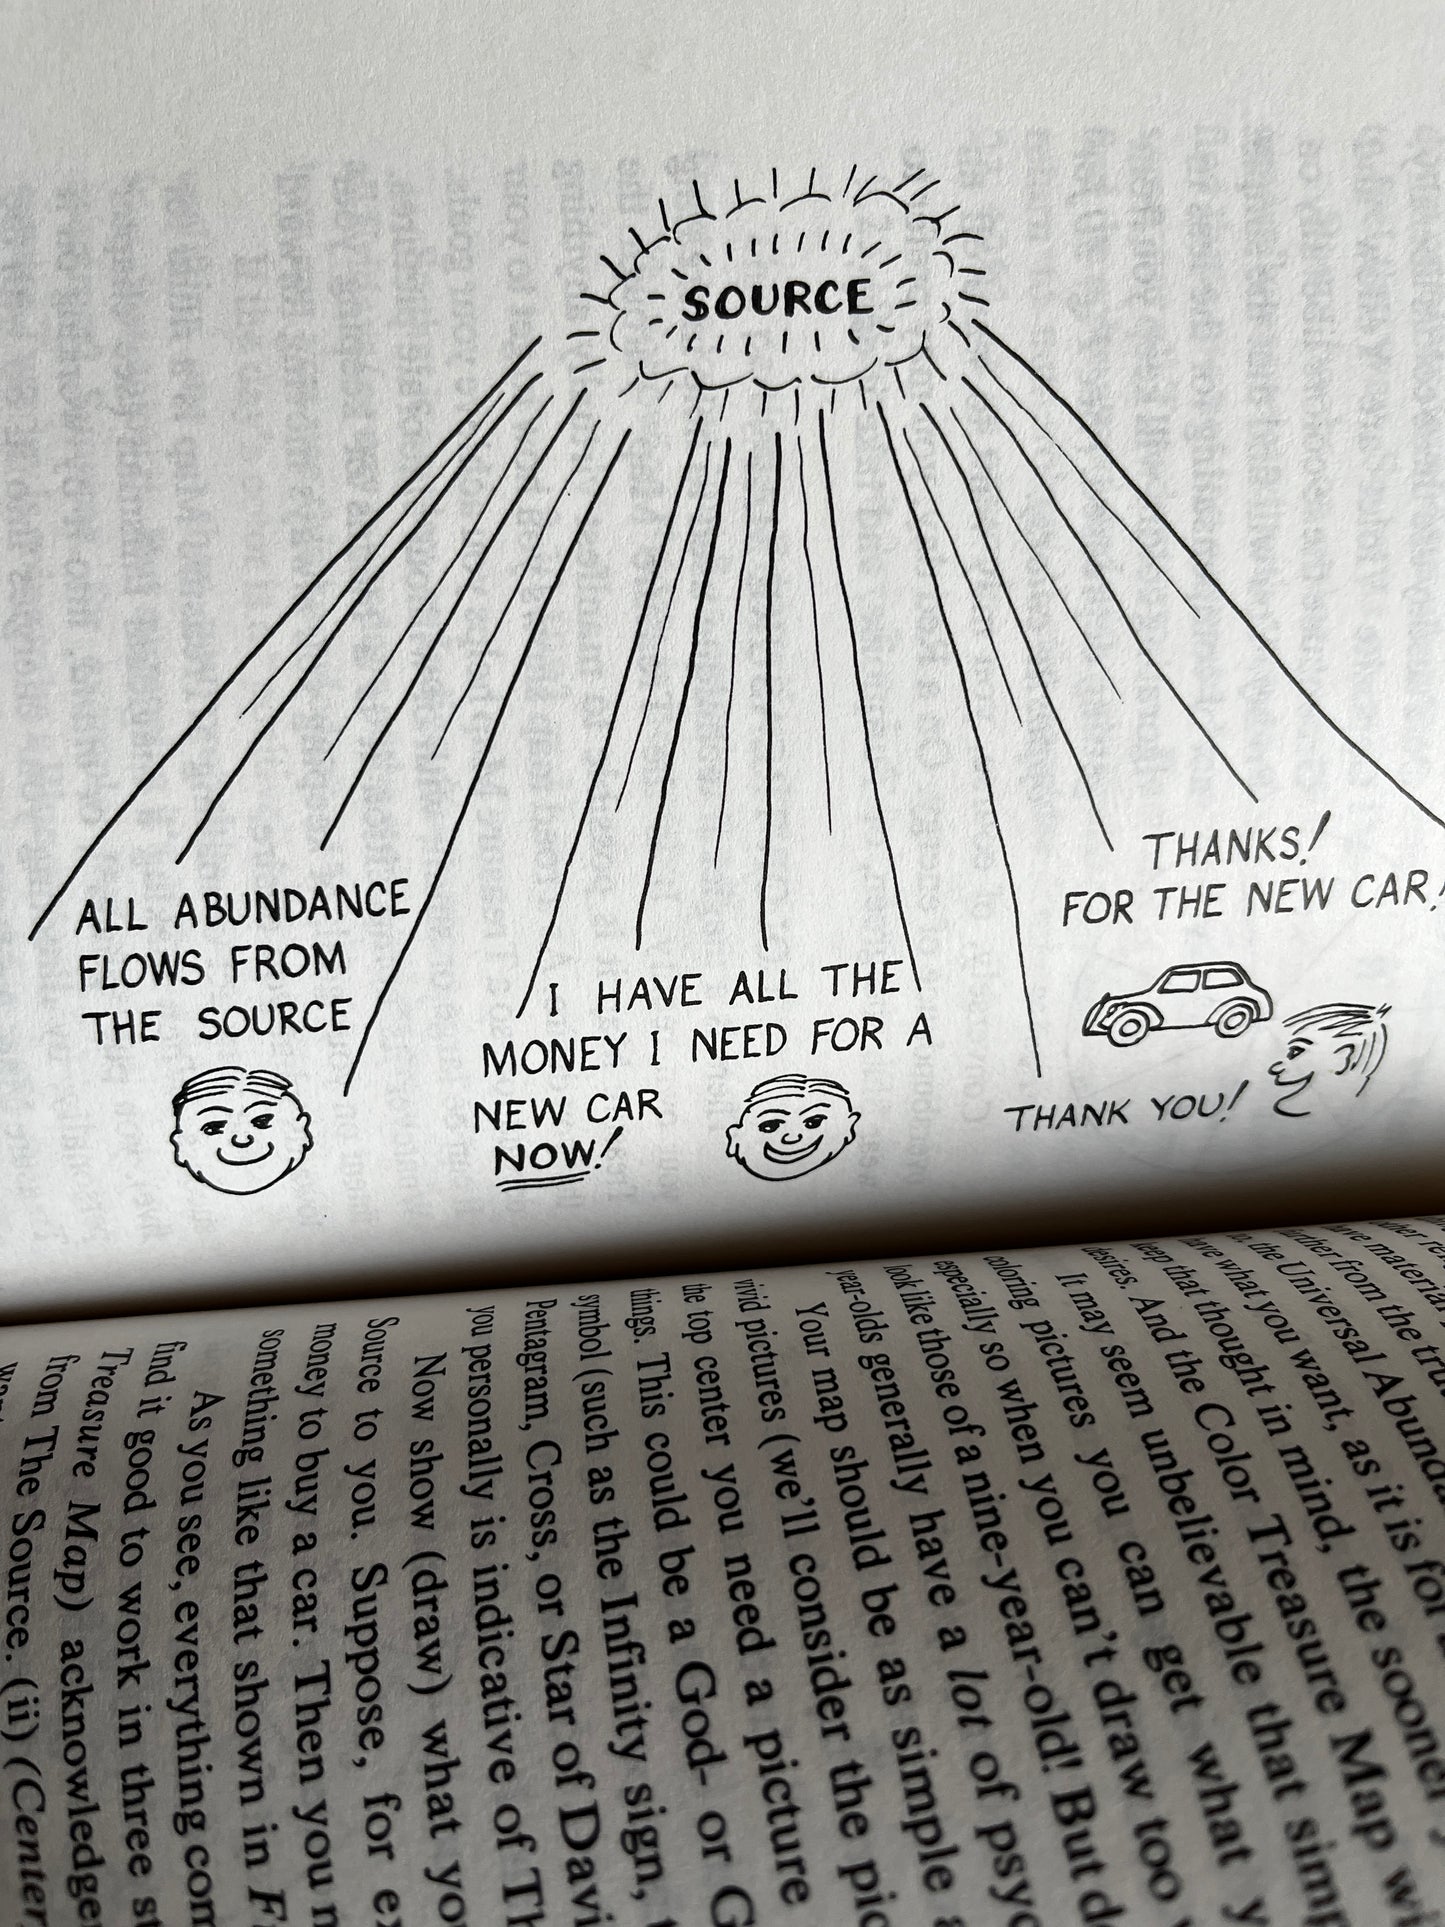 SOURCE
ALL ABUNDANCE
FLOWS FROM
THE SOURCE
I HAVE ALL THE
MONEY I NEED FOR A
NEW CAR
NOW!
THANKS!
FOR THE NEW CAR!
THANK YOU!
other
have material
further from the
to, the Universal
have what you want, as it is for
keep that thought in mind, the sooner
desires. And the Color Treasure Map
It may seem unbelievable that
coloring pictures you can get what
especially so when you can't draw too
look like those of a nine-year-old! But
year-olds generally have a lot of
Your map should be as simple
vivid pictures (we'll consider the
the top center you need a picture
things. This could be a God- or
symbol (such as the Infinity sign,
Pentagram, Cross, or Star of
you personally is indicative of
Now show (draw) what
Source to you. Suppose, for
money to buy a car. Then you
something like that shown in
As you see, everything
find it good to work in three
Treasure Map)
from The Source. (ii) (Center